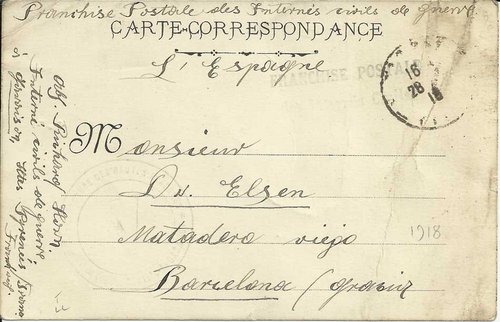 Franchise Postale des Internés civils de guerre
CARTE-CORRESPONDANCE
L'Espagne
FRANCHISE POSTALE
16
28
18
Monsieur
Dr. Elsen
Matadero viejo
Barcelona / Gracia
1918
Interné civils de guerre
à Garaison, Htes Pyrenées